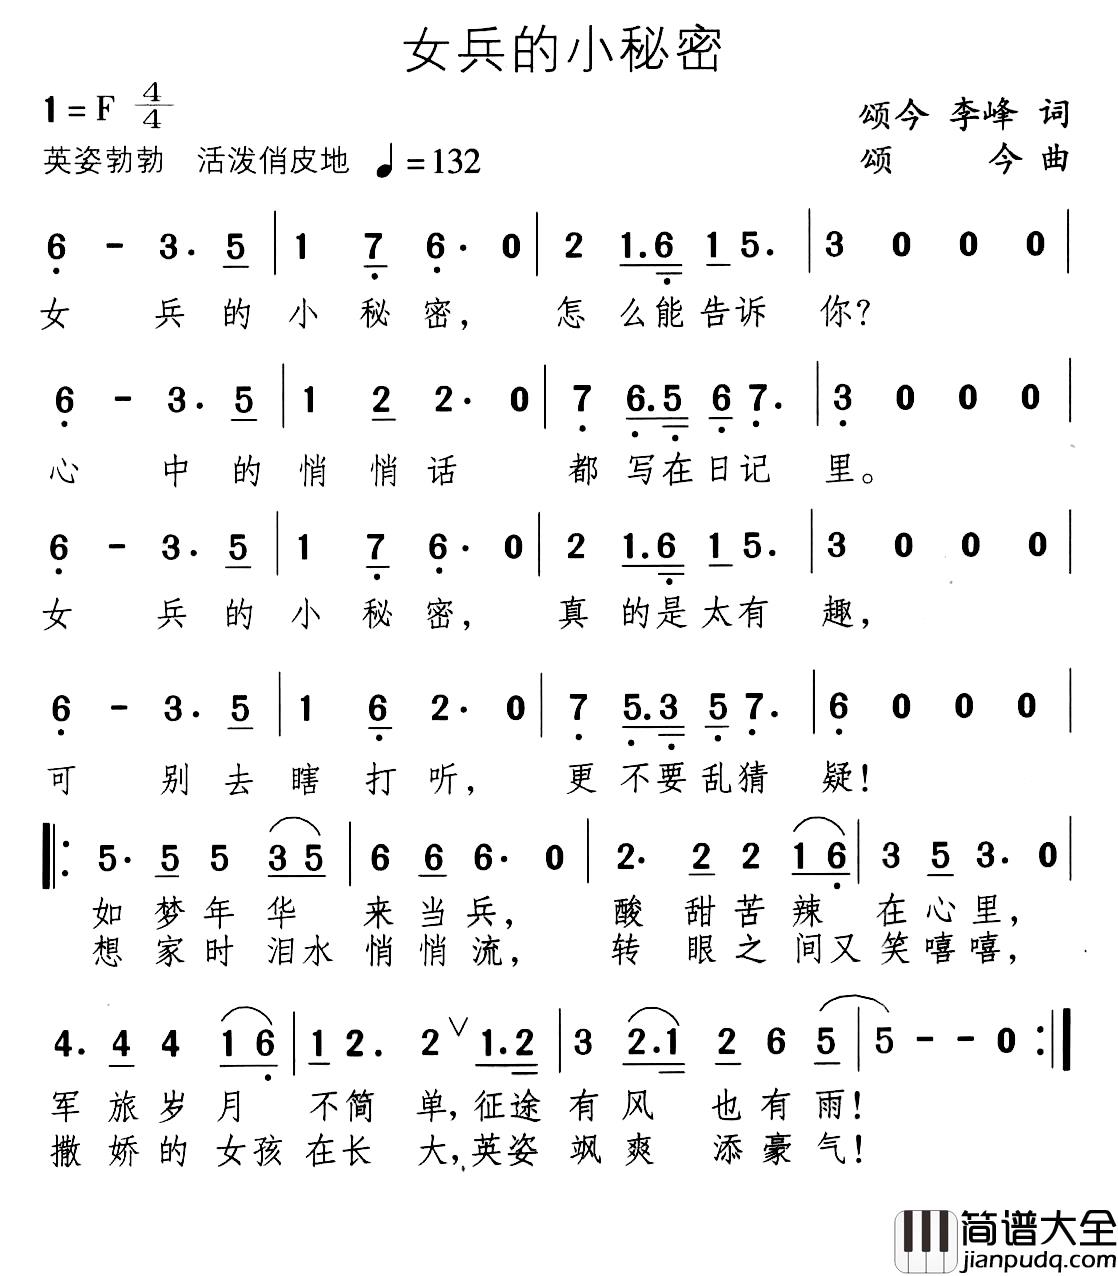 女兵的小秘密
1=F 4/4
颂今 李峰 词
英姿勃勃 活泼俏皮地 ♩=132
颂 今 曲
6 - 3. 5 | 1 7 6. 0 | 2 1.6 1 5. | 3 0 0 0 |
女 兵 的 小 秘 密, 怎 么 能 告 诉 你?
6 - 3. 5 | 1 2 2. 0 | 7 6.5 6 7. | 3 0 0 0 |
心 中 的 悄 悄 话 都 写 在 日 记 里。
6 - 3. 5 | 1 7 6. 0 | 2 1.6 1 5. | 3 0 0 0 |
女 兵 的 小 秘 密, 真 的 是 太 有 趣,
6 - 3. 5 | 1 6 2. 0 | 7 5.3 5 7. | 6 0 0 0 |
可 别 去 瞎 打 听, 更 不 要 乱 猜 疑!
‖: 5. 5 5 3 5 | 6 6 6. 0 | 2. 2 2 1 6 | 3 5 3. 0 |
如 梦 年 华 来 当 兵, 酸 甜 苦 辣 在 心 里,
想 家 时 泪 水 悄 悄 流, 转 眼 之 间 又 笑 嘻 嘻,
4. 4 4 1 6 | 1 2. 2 ∨ 1.2 | 3 2.1 2 6 5 | 5 - - 0 :‖
军 旅 岁 月 不 简 单, 征 途 有 风 也 有 雨!
撒 娇 的 女 孩 在 长 大, 英 姿 飒 爽 添 豪 气!
简谱大全
jianpudq.com